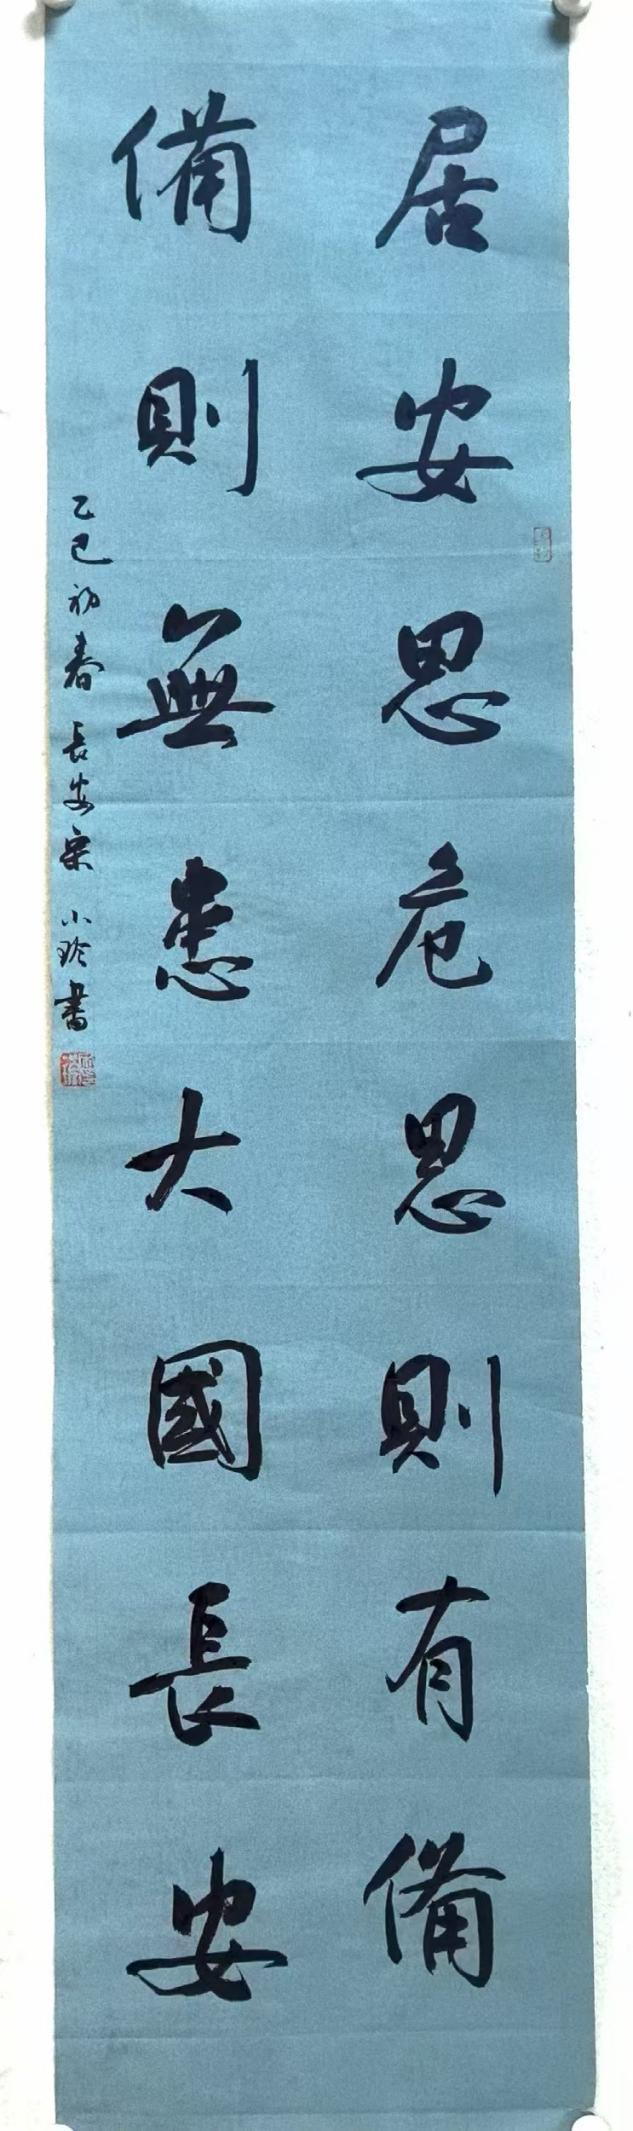 居安思危思則有備
備則無患大國長安
乙巳初春長安宋小玲書